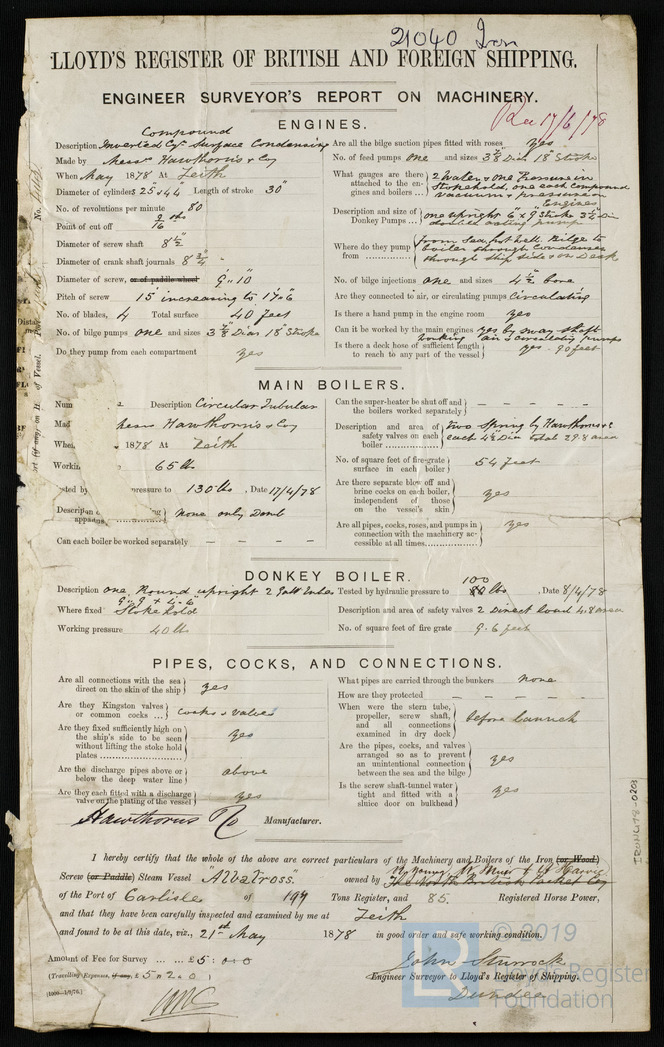 21040 Iron
LLOYD'S REGISTER OF BRITISH AND FOREIGN SHIPPING.
ENGINEER SURVEYOR'S REPORT ON MACHINERY.
Rec 17/6/78
ENGINES.
Compound
Description Inverted Cyl. Surface Condensing
Made by Messrs Hawthorns & Coy
When May 1878 At Leith
Diameter of cylinders 25" & 44 Length of stroke 30"
No. of revolutions per minute 80
Point of cut off 9/16 ths
Diameter of screw shaft 8 1/2"
Diameter of crank shaft journals 8 3/4"
Diameter of screw, or of paddle wheel 9'-10"
Pitch of screw 15' increasing to 17'-6
No. of blades, 4 Total surface 40 feet
No. of bilge pumps one and sizes 3 3/8" Dia. 18" Stroke
Do they pump from each compartment yes
Are all the bilge suction pipes fitted with roses yes
No. of feed pumps one and sizes 3 3/8" Dia. 18" Stroke
What gauges are there attached to the engines and boilers ... 2 Water & one Pressure in Stokehold, one each Compound vacuum & pressure in Engines
Description and size of Donkey Pumps ... one upright 6" x 9" Stroke 3 1/2" Dia double acting pump
Where do they pump from from Sea, hot well Bilge to boiler through Condenser through ship side & on Deck
No. of bilge injections one and sizes 4 1/2 bore
Are they connected to air, or circulating pumps Circulating
Is there a hand pump in the engine room yes
Can it be worked by the main engines yes by way shaft working air & circulating pumps
Is there a deck hose of sufficient length to reach to any part of the vessel yes - 90 feet
MAIN BOILERS.
Num Description Circular Tubular
Mad Messrs Hawthorns & Coy
When 1878 At Leith
Workin 65 lbs
ested by pressure to 130 lbs, Date 17/4/78
Description none only Domb
Can each boiler be worked separately — — — —
Can the super-heater be shut off and the boilers worked separately — — — —
Description and area of safety valves on each boiler two Spring by Hawthorns & each 4 3/8 Dia total 29.8 area
No. of square feet of fire-grate surface in each boiler 54 feet
Are there separate blow off and brine cocks on each boiler, independent of those on the vessel's skin yes
Are all pipes, cocks, roses, and pumps in connection with the machinery accessible at all times yes
DONKEY BOILER.
Description one Round upright 2 Gall tubes
9'-9" x 4'-6"
Where fixed Stokehold
Working pressure 40 lbs
Tested by hydraulic pressure to 100 80 lbs, Date 8/4/78
Description and area of safety valves 2 Direct load 4.8 area
No. of square feet of fire grate 9.6 feet
PIPES, COCKS, AND CONNECTIONS.
Are all connections with the sea direct on the skin of the ship yes
Are they Kingston valves or common cocks ... cocks & valves
Are they fixed sufficiently high on the ship's side to be seen without lifting the stoke hold plates yes
Are the discharge pipes above or below the deep water line above
Are they each fitted with a discharge valve on the plating of the vessel yes
What pipes are carried through the bunkers none
How are they protected — — — —
When were the stern tube, propeller, screw shaft, and all connections examined in dry dock before launch
Are the pipes, cocks, and valves arranged so as to prevent an unintentional connection between the sea and the bilge yes
Is the screw shaft-tunnel water tight and fitted with a sluice door on bulkhead yes
Hawthorns & Co Manufacturer.
I hereby certify that the whole of the above are correct particulars of the Machinery and Boilers of the Iron (or Wood)
Screw (or Paddle) Steam Vessel "Albatross" owned by The North British Packet Coy
of the Port of Carlisle of 194 Tons Register, and 85. Registered Horse Power,
and that they have been carefully inspected and examined by me at Leith
and found to be at this date, viz., 21st May 1878 in good order and safe working condition.
Amount of Fee for Survey ... ... £5:0:0
(Travelling Expenses, if any, £5 " 2 . 0 )
(1000—1/9/76.)
John Sturrock
Engineer Surveyor to Lloyd's Register of Shipping.
Dundee
IRON478-0203
© 2019
Lloyd's Register
Foundation